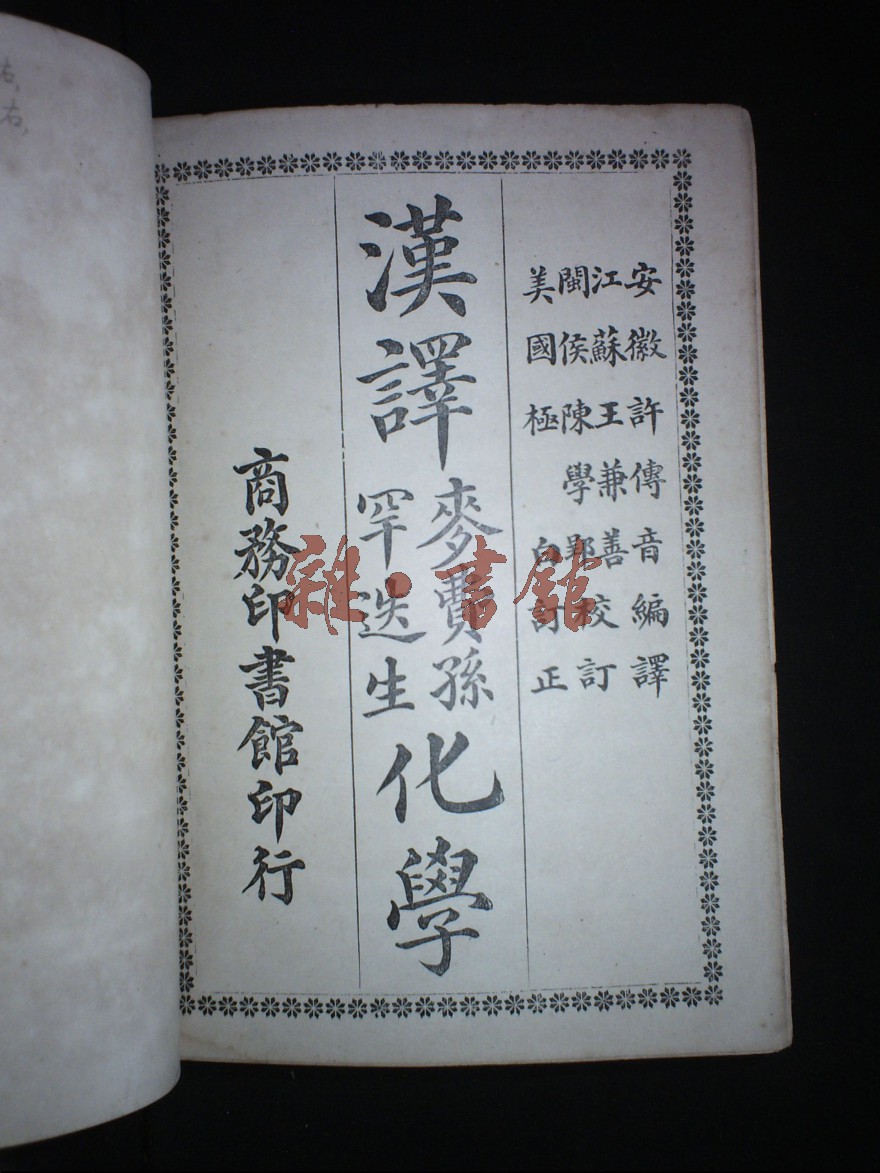 安徽許傳音編譯
江蘇王兼善校訂
閩侯陳學郢
美國極白訂正
漢譯麥費孫罕迭生化學
商務印書館印行
雜·書館
右,
右,